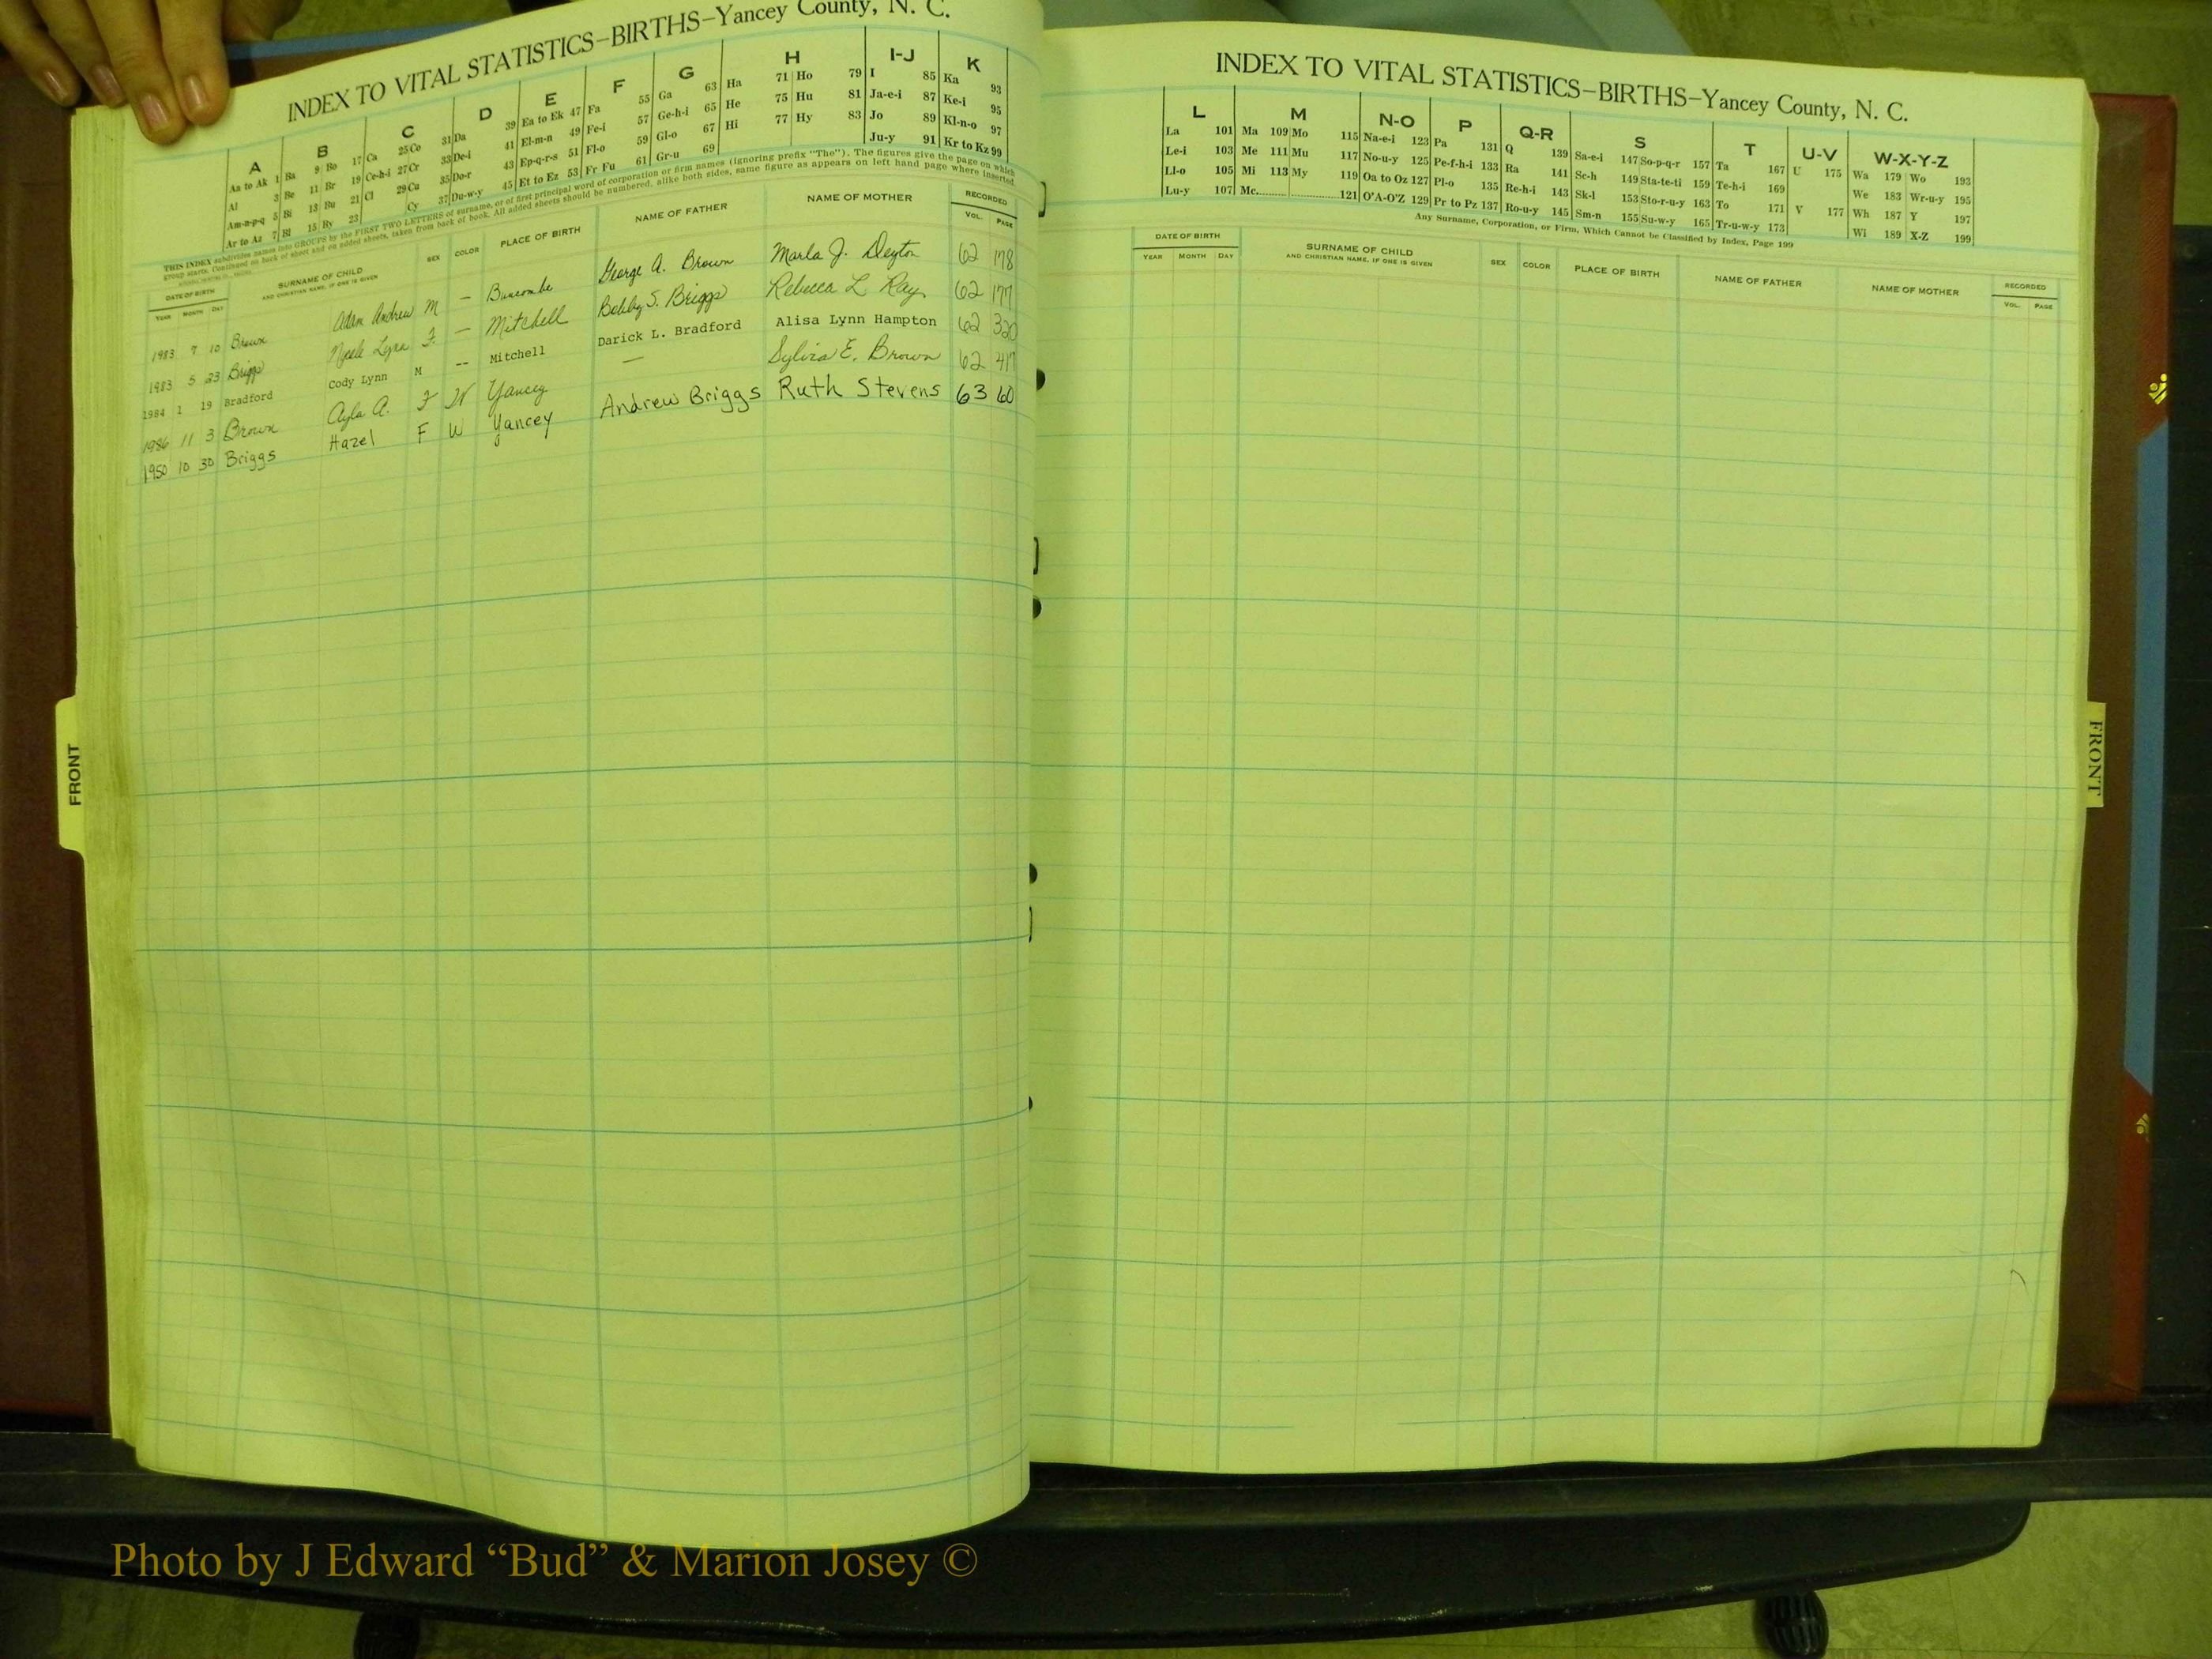 INDEX TO VITAL STATISTICS–BIRTHS–Yancey County, N. C.
A B C D E F G H I-J K
Aa to Ak 1 Ba 9 Bo 17 Ca 25 Co 31 Da 39 Ea to Ek 47 Fa 55 Ga 63 Ha 71 Ho 79 I 85 Ka 93
Al 3 Be 11 Br 19 Ce-h-i 27 Cr 33 De-i 41 El-m-n 49 Fe-i 57 Ge-h-i 65 He 75 Hu 81 Ja-e-i 87 Ke-i 95
Am-n-p-q 5 Bi 13 Bu 21 Cl 29 Cu 35 Do-r 43 Ep-q-r-s 51 Fl-o 59 Gl-o 67 Hi 77 Hy 83 Jo 89 Kl-n-o 97
Ar to Az 7 Bl 15 By 23 Cy 37 Du-w-y 45 Et to Ez 53 Fr Fu 61 Gr-u 69 Ju-y 91 Kr to Kz 99
THIS INDEX subdivides names into GROUPS by the FIRST TWO LETTERS of surname, or of first principal word of corporation or firm names (ignoring prefix "The"). The figures give the page on which
group starts. Continued on back of sheet and on added sheets, taken from back of book. All added sheets should be numbered, alike both sides, same figure as appears on left hand page where inserted.
DATE OF BIRTH SURNAME OF CHILD SEX COLOR PLACE OF BIRTH NAME OF FATHER NAME OF MOTHER RECORDED
YEAR MONTH DAY AND CHRISTIAN NAME, IF ONE IS GIVEN VOL. PAGE
1983 7 10 Brown Adam Andrew M – Buncombe George A. Brown Marla J. Deyton 62 178
1983 5 23 Briggs Lynn F – Mitchell Bobby S. Briggs Rebecca L Ray 62 177
1984 1 19 Bradford Cody Lynn M -- Mitchell Darick L. Bradford Alisa Lynn Hampton 62 320
1986 11 3 Brown Ayla A. F W Yancey — Sylvia E. Brown 62 417
1950 10 30 Briggs Hazel F W Yancey Andrew Briggs Ruth Stevens 63 60
FRONT
INDEX TO VITAL STATISTICS–BIRTHS–Yancey County, N. C.
L M N-O P Q-R S T U-V W-X-Y-Z
La 101 Ma 109 Mo 115 Na-e-i 123 Pa 131 Q 139 Sa-e-i 147 So-p-q-r 157 Ta 167 U 175 Wa 179 Wo 193
Le-i 103 Me 111 Mu 117 No-u-y 125 Pe-f-h-i 133 Ra 141 Sc-h 149 Sta-te-ti 159 Te-h-i 169 We 183 Wr-u-y 195
Ll-o 105 Mi 113 My 119 Oa to Oz 127 Pl-o 135 Re-h-i 143 Sk-l 153 Sto-r-u-y 163 To 171 V 177 Wh 187 Y 197
Lu-y 107 Mc 121 O'A-O'Z 129 Pr to Pz 137 Ro-u-y 145 Sm-n 155 Su-w-y 165 Tr-u-w-y 173 Wi 189 X-Z 199
Any Surname, Corporation, or Firm, Which Cannot be Classified by Index, Page 199
DATE OF BIRTH SURNAME OF CHILD SEX COLOR PLACE OF BIRTH NAME OF FATHER NAME OF MOTHER RECORDED
YEAR MONTH DAY AND CHRISTIAN NAME, IF ONE IS GIVEN VOL. PAGE
FRONT
Photo by J Edward “Bud” & Marion Josey ©